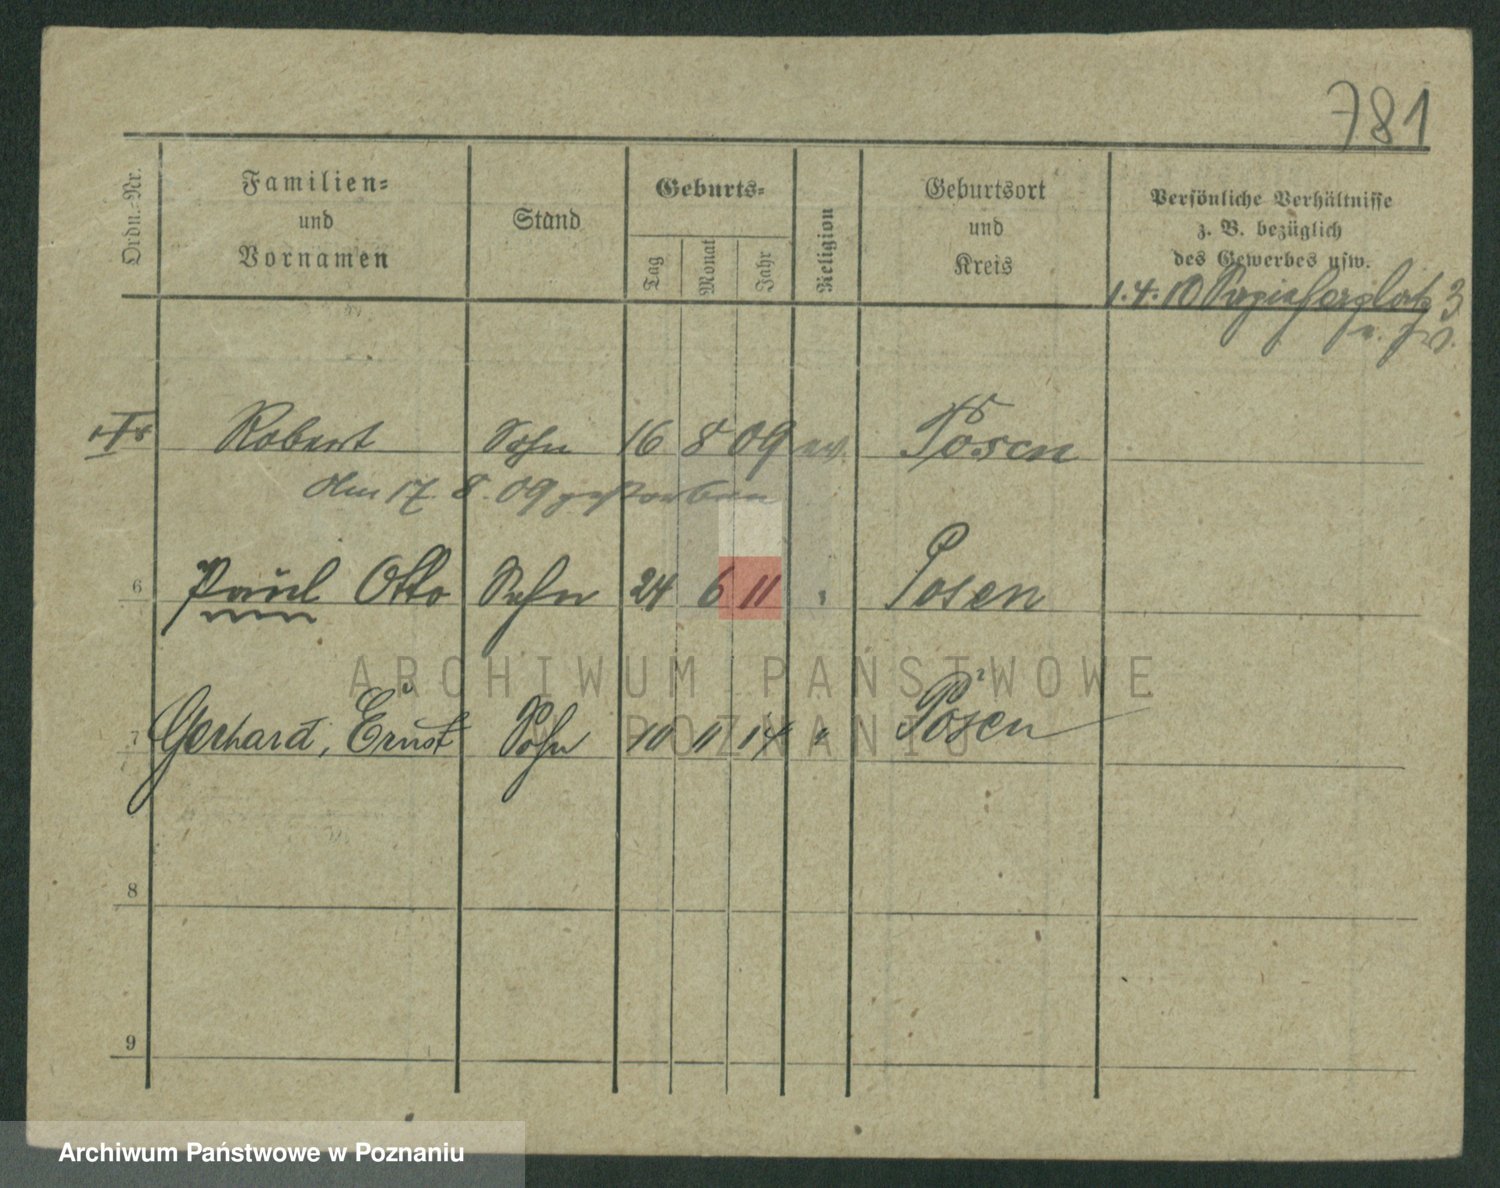 781
Ordn.-Nr.
Familien-
und
Vornamen
Stand
Geburts-
Tag
Monat
Jahr
Religion
Geburtsort
und
Kreis
Persönliche Verhältnisse
z. B. bezüglich
des Gewerbes usw.
1.4.10 Sapiehaplatz 3
Robert Sohn 16 8 09 ev. Posen
am 17. 8. 09 gestorben
6 Paul Otto Sohn 24 6 11 " Posen
7 Gerhard, Ernst Sohn 10 11 14 " Posen
8
9
ARCHIWUM PAŃSTWOWE
W POZNANIU
Archiwum Państwowe w Poznaniu